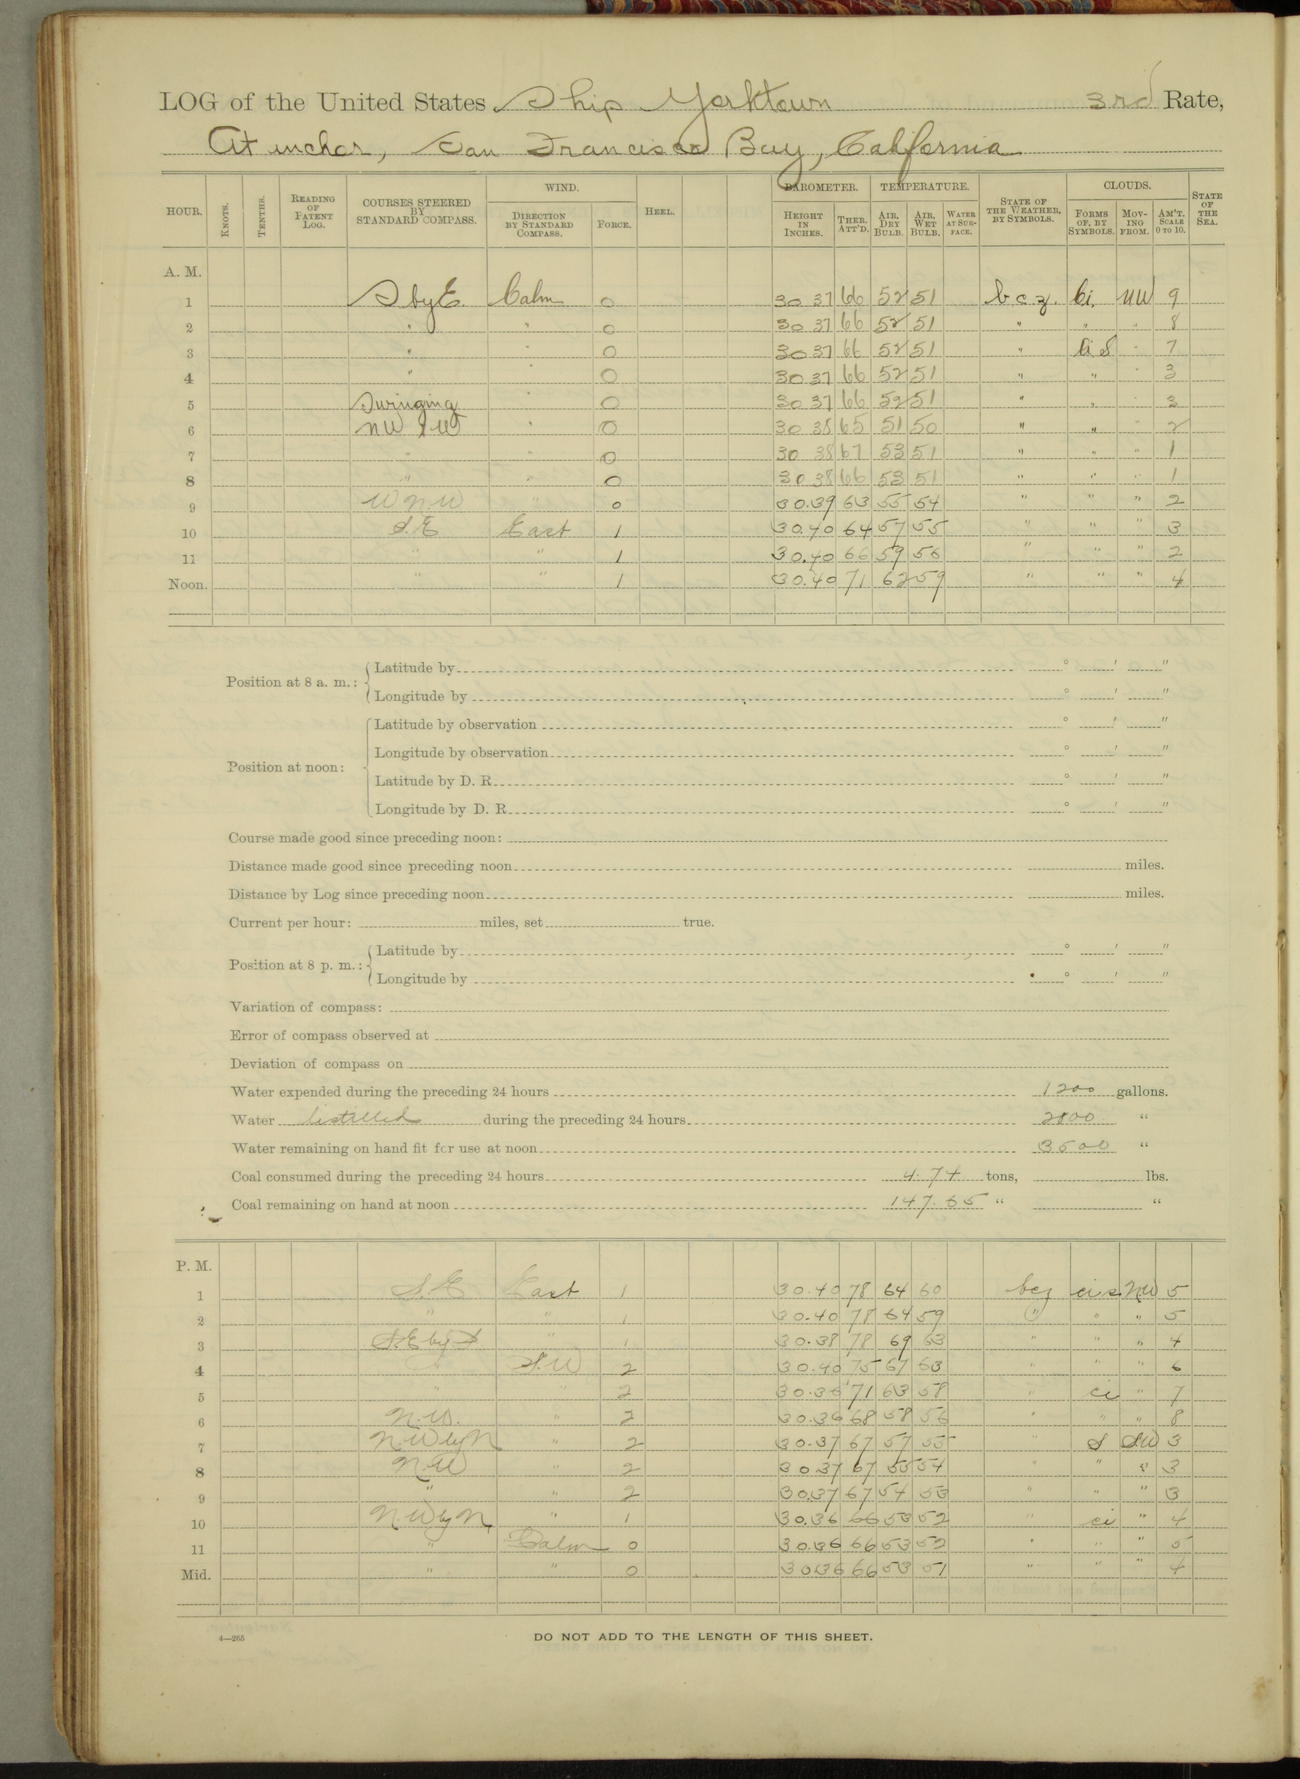 LOG of the United States Ship Yorktown 3rd Rate,
At anchor, San Francisco Bay, California
HOUR. KNOTS. TENTHS. READING OF PATENT LOG. COURSES STEERED BY STANDARD COMPASS. WIND. DIRECTION BY STANDARD COMPASS. FORCE. HEEL. BAROMETER. HEIGHT IN INCHES. THER. ATT'D. TEMPERATURE. AIR, DRY BULB. AIR, WET BULB. WATER AT SURFACE. STATE OF THE WEATHER, BY SYMBOLS. CLOUDS. FORMS OF, BY SYMBOLS. MOVING FROM. AM'T. SCALE 0 TO 10. STATE OF THE SEA.
A. M.
1 S by E. Calm 0 30 37 66 52 51 b c z. Ci. NW 9
2 " " 0 30 37 66 52 51 " " " 8
3 " " 0 30 37 66 52 51 " Ci S " 7
4 " " 0 30 37 66 52 51 " " " 3
5 Swinging " 0 30 37 66 52 51 " " " 3
6 NW & W " 0 30 38 65 51 50 " " " 2
7 " " 0 30 38 67 53 51 " " " 1
8 " " 0 30 38 66 53 51 " " " 1
9 W N W " 0 30.39 63 55 54 " " " 2
10 S.E East 1 30.40 64 57 55 " " " 3
11 " " 1 30.40 66 59 56 " " " 2
Noon. " " 1 30.40 71 62 59 " " " 4
Position at 8 a. m.: Latitude by ° ′ ″
Longitude by ° ′ ″
Position at noon: Latitude by observation ° ′ ″
Longitude by observation ° ′ ″
Latitude by D. R. ° ′ ″
Longitude by D. R. ° ′ ″
Course made good since preceding noon:
Distance made good since preceding noon miles.
Distance by Log since preceding noon miles.
Current per hour: miles, set true.
Position at 8 p. m.: Latitude by ° ′ ″
Longitude by ° ′ ″
Variation of compass:
Error of compass observed at
Deviation of compass on
Water expended during the preceding 24 hours 1200 gallons.
Water distilled during the preceding 24 hours 2000 "
Water remaining on hand fit for use at noon 3500 "
Coal consumed during the preceding 24 hours 4.74 tons, lbs.
Coal remaining on hand at noon 147.65 " "
P. M.
1 S.E East 1 30.40 78 64 60 bcz ci s NW 5
2 " " 1 30.40 78 64 59 " " " 5
3 S.E by S " 1 30.38 78 69 63 " " " 4
4 " S.W 2 30.40 75 67 63 " " " 6
5 " " 2 30.36 71 63 58 " ci " 7
6 N.W. " 2 30.36 68 58 56 " " " 8
7 N.W by N " 2 30.37 67 57 55 " S SW 3
8 N.W " 2 30 37 67 55 54 " " " 3
9 " " 2 30.37 67 54 53 " " " 3
10 N.W by N " 1 30.36 66 53 52 " ci " 4
11 " Calm 0 30.36 66 53 52 " " " 5
Mid. " " 0 30.36 66 53 51 " " " 4
4—265
DO NOT ADD TO THE LENGTH OF THIS SHEET.